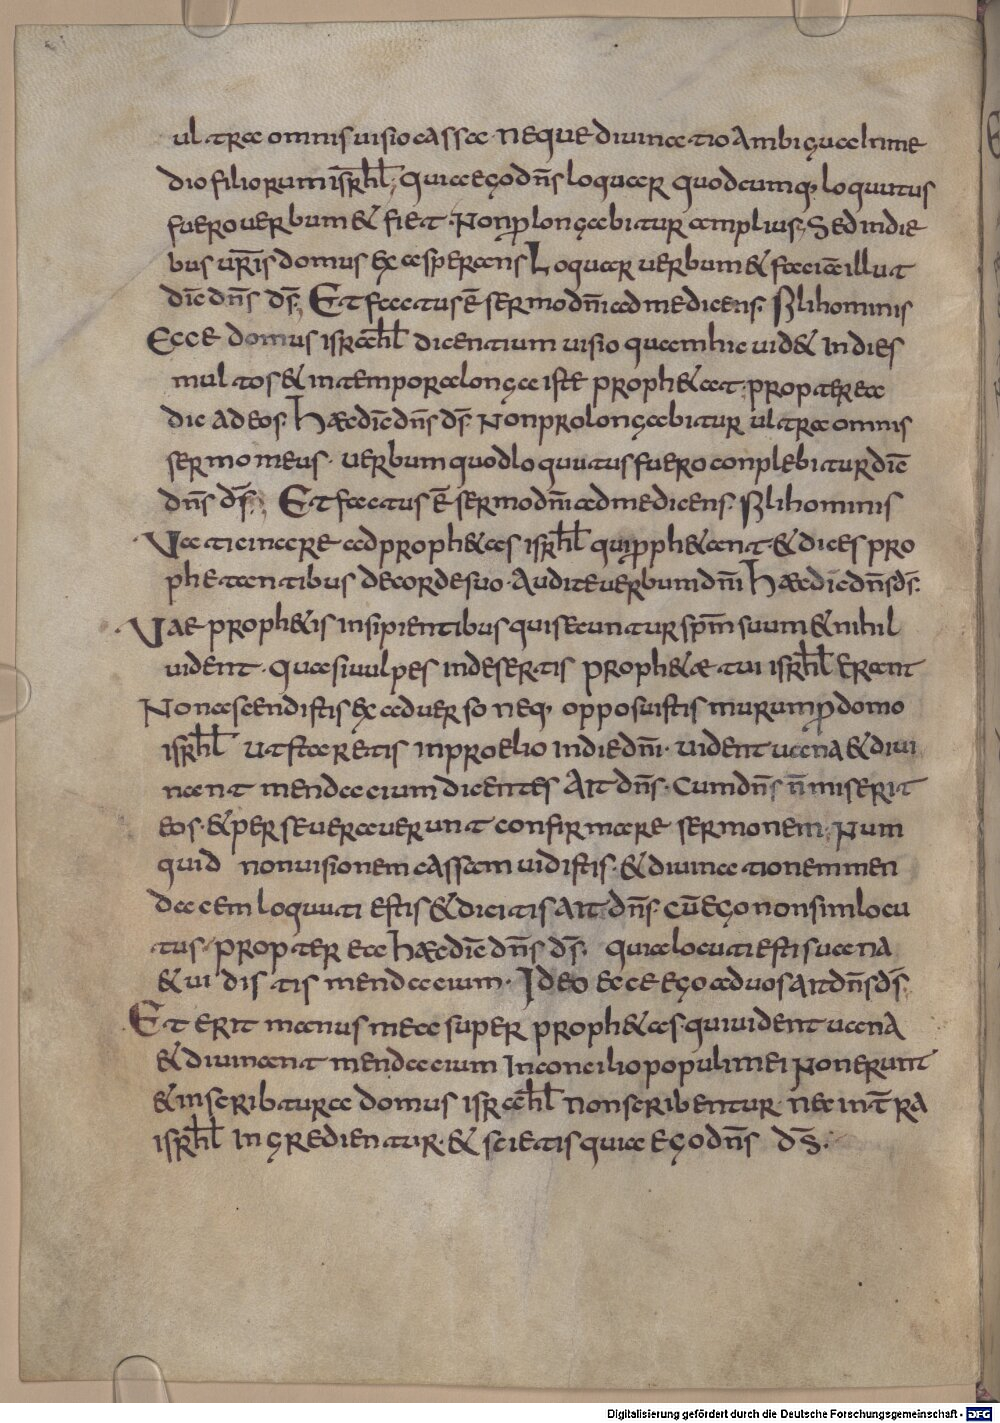 ultra omnis uisio cassa· neque diuinatio ambigua In me
dio filiorum isr̄hl; quia ego dn̄s loquar quodcumq; loquutus
fuero uerbum & fiet· Non ꝓlongabitur amplius; Sed in die
bus ur̄is domus exasperans Loquar uerbum & faciā illut
dic̄ dn̄s ds̄. Et factus ē sermo dn̄i ad me dicens. Fili hominis
Ecce domus isrāhl dicentium uisio quam hic uid& In dies
multos & in tempora longa iste proph&at· propterea
dic ad eos. Hæc dic̄ dn̄s ds̄. Non prolongabitur ultra omnis
sermo meus· uerbum quod loquutus fuero conplebitur dic̄
dn̄s ds̄. Et factus ē sermo dn̄i ad me dicens. Fili hominis
Uaticinare ad proph&as isr̄hl qui ꝓph&ant· & dices pro
phetantibus de corde suo· Audite uerbum dn̄i Hæc dic̄ dn̄s ds̄.
Vae proph&is insipientibus qui secuntur spm̄ suum & nihil
uident· quasi uulpes in desertis proph&æ tui isr̄hl erant
Non ascendistis ex aduerso neq; opposuistis murum ꝓ domo
isr̄hl ut staretis in proelio in die dn̄i· uident uana & diui
nant mendacium dicentes Ait dn̄s· Cum dn̄s n̄ miserit
eos· & perseuerauerunt confirmare sermonem; Num
quid non uisionem cassam uidistis· & diuinationem men
dacem loquuti estis & dicitis ait dn̄s· cū ego non sim locu
tus· propter ea hæc dic̄ dn̄s ds̄. quia locuti estis uana
& uidistis mendacium· Ideo ecce ego ad uos ait dn̄s ds̄
Et erit manus mea super proph&as· qui uident uana
& diuinant mendacium In concilio populi mei Non erunt
& in scribtura domus isrāhl non scribentur· nec int̄ra
isr̄hl Ingredientur· & scietis quia ego dn̄s ds̄.
Digitalisierung gefördert durch die Deutsche Forschungsgemeinschaft - DFG